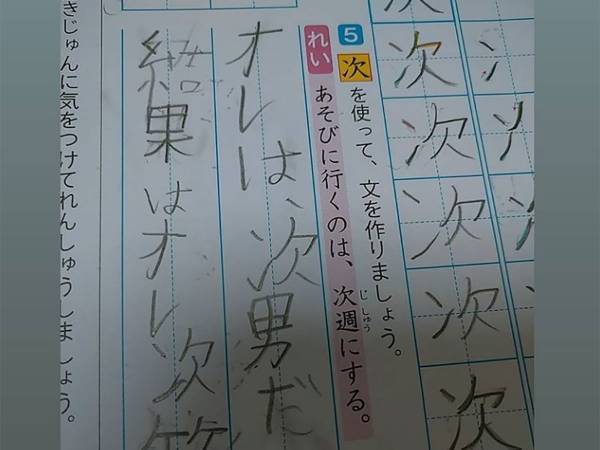 次
次
次
次
次
5 次を使って、文を作りましょう。
れい あそびに行くのは、次週にする。
じしゅう
オレは、次男だ
結果はオレ次第
きじゅんに気をつけてれんしゅうしましょう。